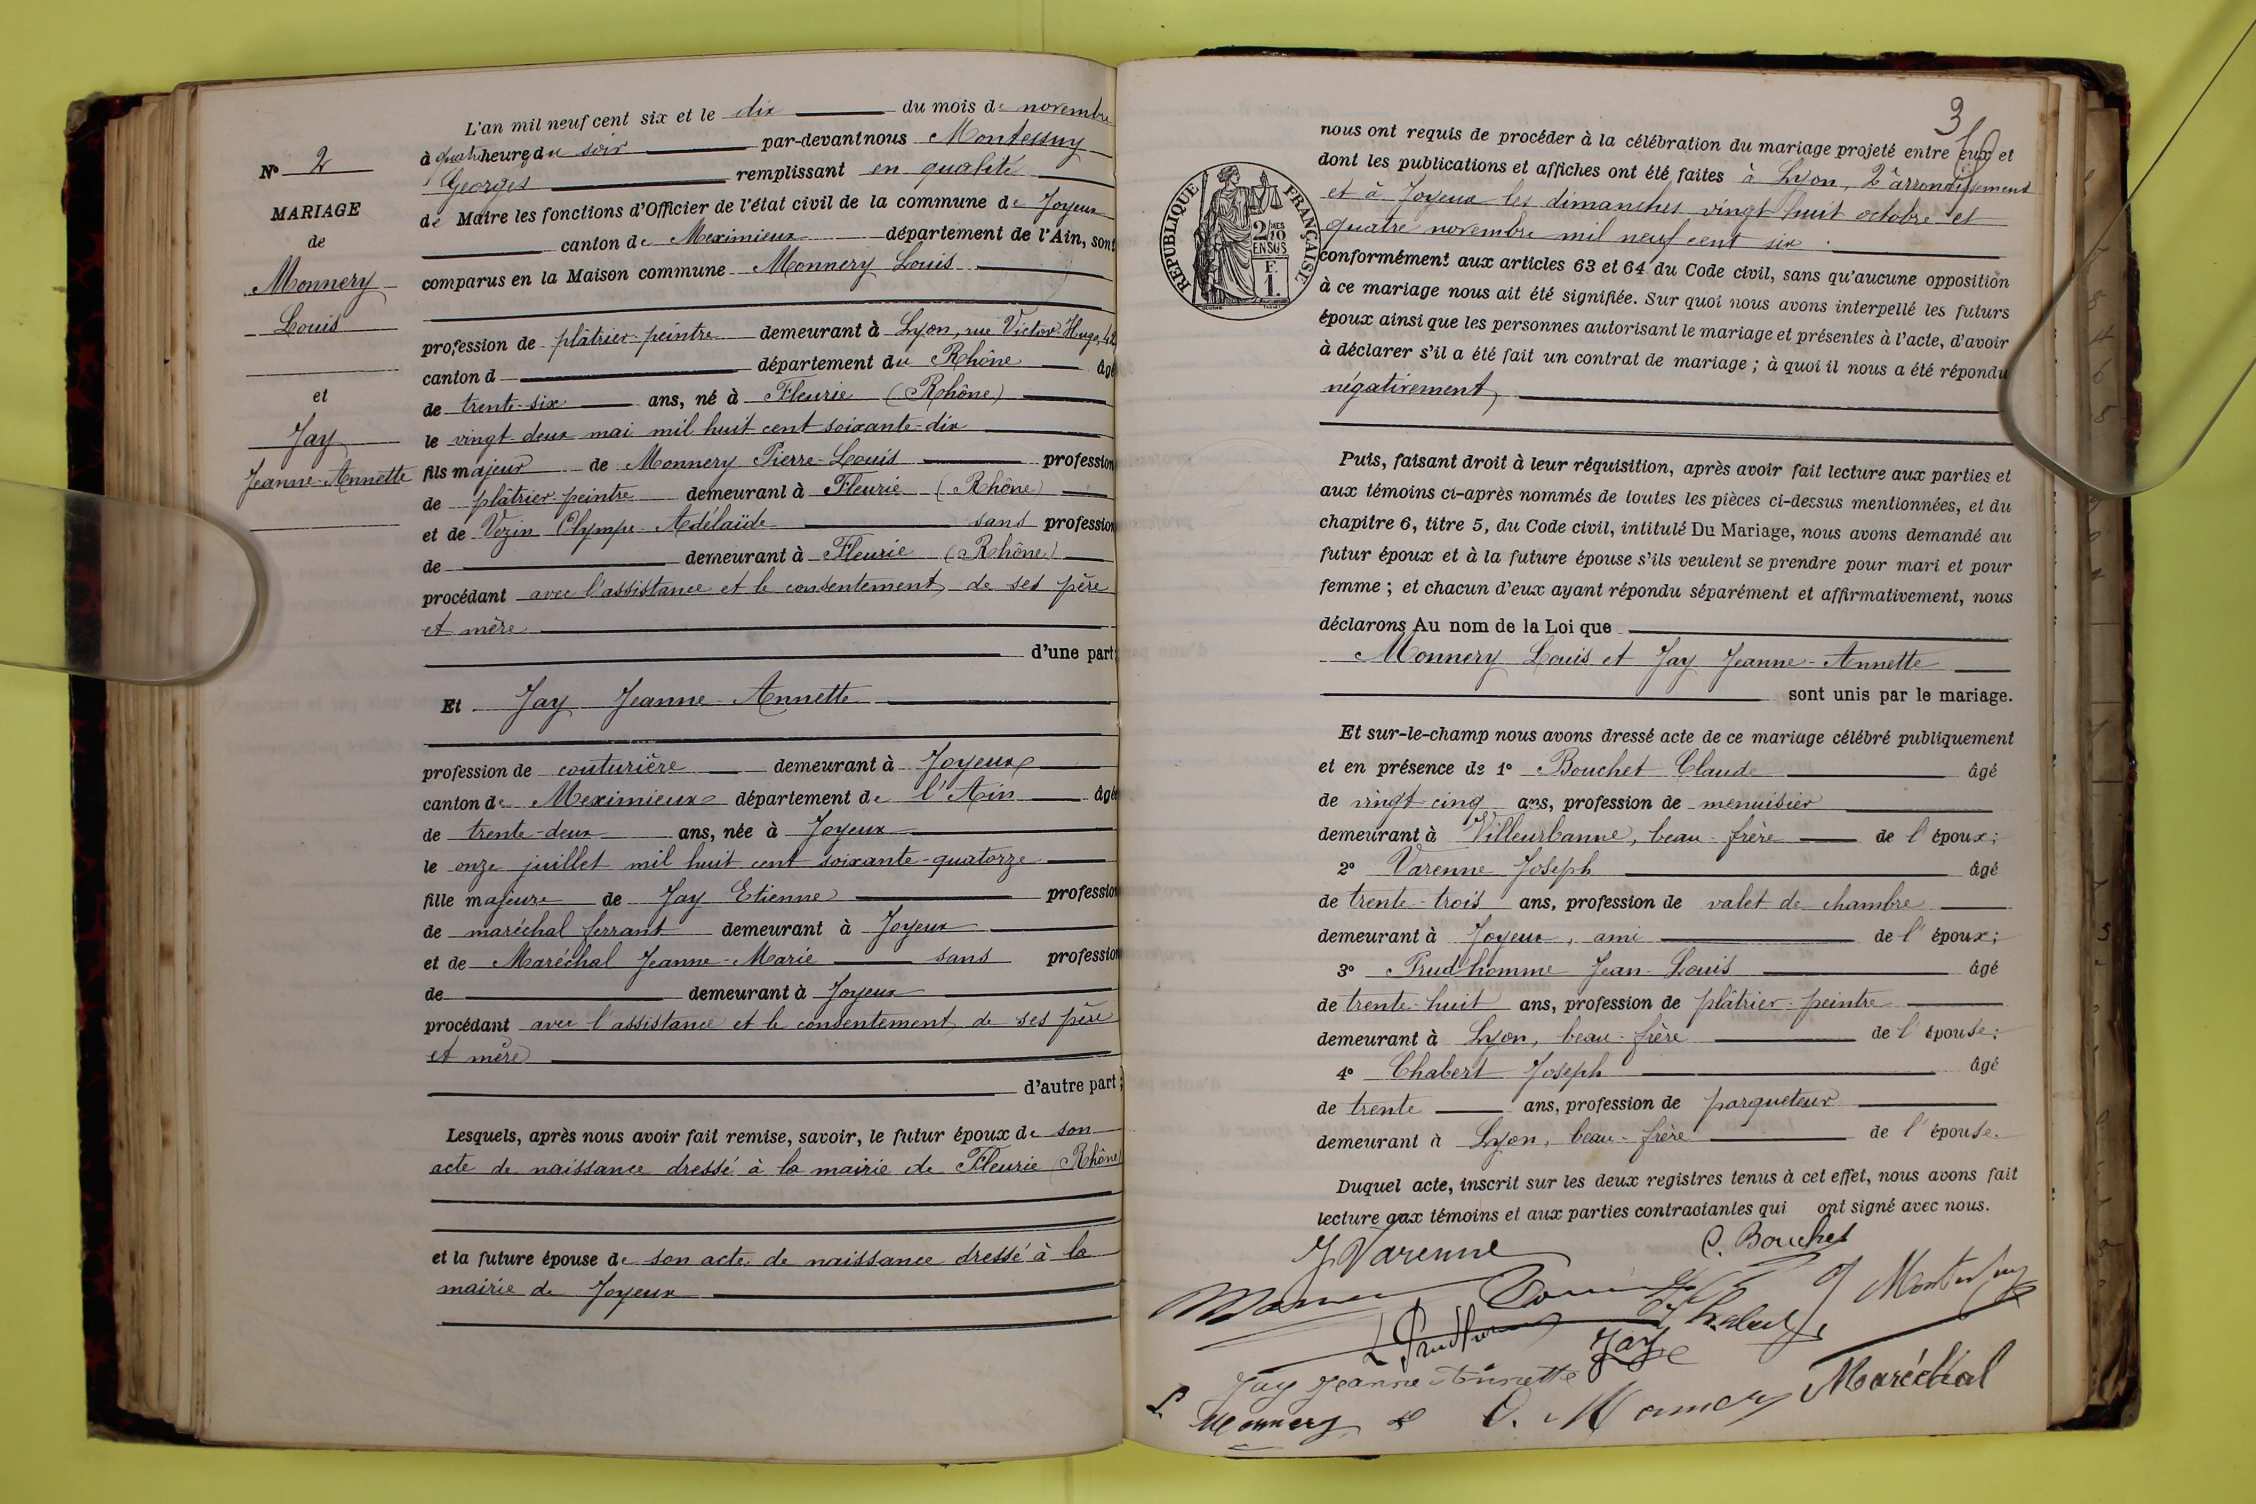 Nº 2
MARIAGE
de
Monnery
Louis
et
Jay
Jeanne-Annette
L'an mil neuf cent six et le dix du mois de novembre
à quatre heures du soir par-devant nous Montessuy
Georges remplissant en qualité
de Maire les fonctions d'Officier de l'état civil de la commune de Joyeux
canton de Meximieux département de l'Ain, sont
comparus en la Maison commune Monnery Louis
profession de plâtrier-peintre demeurant à Lyon, rue Victor Hugo, 42
canton d département du Rhône âgé
de trente-six ans, né à Fleurie (Rhône)
le vingt-deux mai mil huit cent soixante-dix
fils majeur de Monnery Pierre-Louis profession
de plâtrier-peintre demeurant à Fleurie (Rhône)
et de Vezin Olympe-Adélaïde sans profession
de demeurant à Fleurie (Rhône)
procédant avec l'assistance et le consentement de ses père
et mère
d'une part;
Et Jay Jeanne-Annette
profession de couturière demeurant à Joyeux
canton de Meximieux département de l'Ain âgée
de trente-deux ans, née à Joyeux
le onze juillet mil huit cent soixante-quatorze
fille majeure de Jay Etienne profession
de maréchal ferrant demeurant à Joyeux
et de Maréchal Jeanne-Marie sans profession
de demeurant à Joyeux
procédant avec l'assistance et le consentement de ses père
et mère
d'autre part;
Lesquels, après nous avoir fait remise, savoir, le futur époux de son
acte de naissance dressé à la mairie de Fleurie (Rhône)
et la future épouse de son acte de naissance dressé à la
mairie de Joyeux
3
RÉPUBLIQUE FRANÇAISE
2/10 EN SUS
F. 1.
nous ont requis de procéder à la célébration du mariage projeté entre eux et
dont les publications et affiches ont été faites à Lyon, 2e arrondissement
et à Joyeux les dimanches vingt huit octobre et
quatre novembre mil neuf cent six.
conformément aux articles 63 et 64 du Code civil, sans qu'aucune opposition
à ce mariage nous ait été signifiée. Sur quoi nous avons interpellé les futurs
époux ainsi que les personnes autorisant le mariage et présentes à l'acte, d'avoir
à déclarer s'il a été fait un contrat de mariage ; à quoi il nous a été répondu
négativement,
Puis, faisant droit à leur réquisition, après avoir fait lecture aux parties et
aux témoins ci-après nommés de toutes les pièces ci-dessus mentionnées, et du
chapitre 6, titre 5, du Code civil, intitulé Du Mariage, nous avons demandé au
futur époux et à la future épouse s'ils veulent se prendre pour mari et pour
femme ; et chacun d'eux ayant répondu séparément et affirmativement, nous
déclarons Au nom de la Loi que
Monnery Louis et Jay Jeanne-Annette
sont unis par le mariage.
Et sur-le-champ nous avons dressé acte de ce mariage célébré publiquement
et en présence de 1º Bouchet Claude âgé
de vingt-cinq ans, profession de menuisier
demeurant à Villeurbanne, beau-frère de l'époux;
2º Varenne Joseph âgé
de trente-trois ans, profession de valet de chambre
demeurant à Joyeux, ami de l'époux;
3º Prud'homme Jean-Louis âgé
de trente-huit ans, profession de plâtrier-peintre
demeurant à Lyon, beau-frère de l'épouse;
4º Chabert Joseph âgé
de trente ans, profession de parqueteur
demeurant à Lyon, beau-frère de l'épouse.
Duquel acte, inscrit sur les deux registres tenus à cet effet, nous avons fait
lecture aux témoins et aux parties contractantes qui ont signé avec nous.
J Varenne
C. Bouchet
G Montessuy
Jay
Jay Jeanne Annette
Maréchal
Monnery